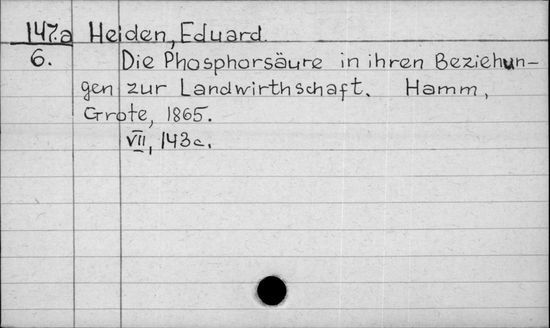 147.a Heiden, Eduard.
6. Die Phosphorsäure in ihren Beziehun-
gen zur Landwirthschaft. Hamm,
Grote, 1865.
VII, 143 c.